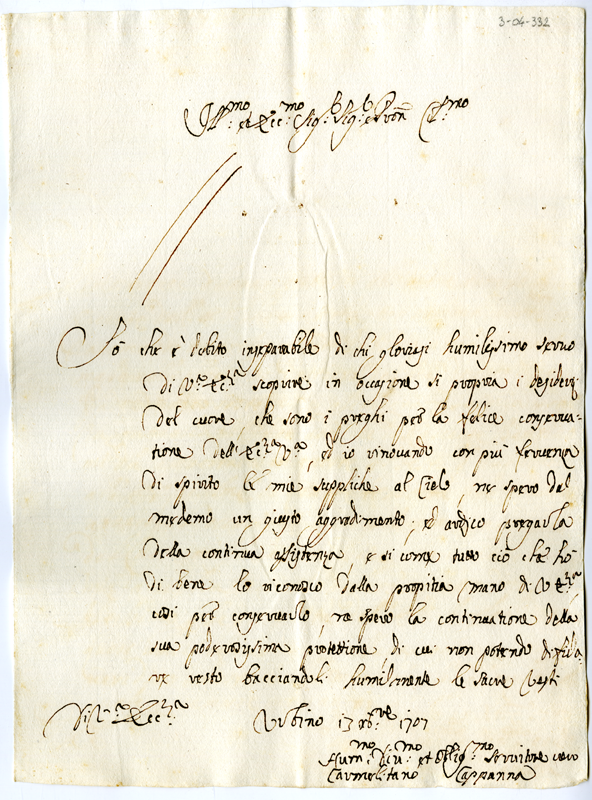 3-04-332
Ill:mo et Ecc:mo Sig:r Sig:r e Pron Col:mo
Sò che è debito inseparabile di chi gloriasi humilissimo servo
di V:a Ecc:za scoprire in occasione si propria i desiderij
del cuore, che sono i preghi per la felice conserva-
tione dell'Ecc:za V:a, ed io rinovando con più fervenza
di spirito le mie suppliche al Cielo, ne spero dal
medemo un giusto aggradimento; ed ardisco pregarla
della continua assistenza, e si come tutto ciò che hò
di bene lo riconosco dalla propitia mano di V Ecc:za
così per conservarlo, ne spero la continuatione della
sua poderosissima protettione, di cui non potendo diffida-
re resto bacciandoli humilmente le sacre Vesti
Di V:a Ecc:za
Urbino 13 Xb:re 1707
Hum:mo Div:mo et Oblig:mo Servitore vero
Carmelitano Cappanna